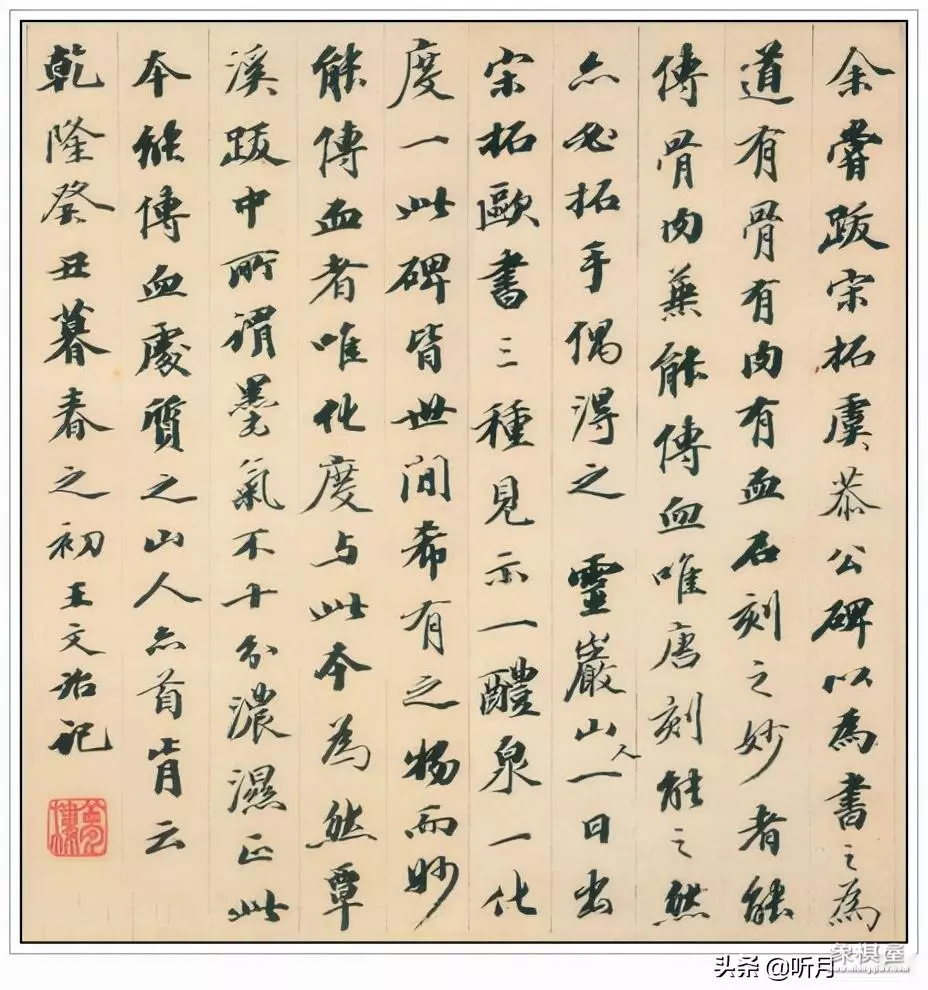 余嘗跋宋拓虞恭公碑以為書之為
道有骨有肉有血石刻之妙者能
傳骨肉葉能傳血唯唐刻能之然
亦必拓手偶得之 靈巖山人一日出
宋拓歐書三種見示一醴泉一化
度一此碑皆世間希有之物而妙
能傳血者唯化度与此本為然覃
溪跋中所謂墨氣不十分濃濕正此
本能傳血處質之山人亦首肯云
乾隆癸丑暮春之初王文治記
夢樓
头条 @听月
象棋屋